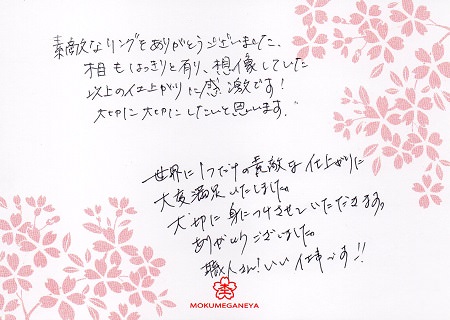 素敵なリングをありがとうございました。
相もはっきりと有り、想像していた
以上の仕上がりに感激です!
大切に大切にしたいと思います。
世界に1つだけの素敵な仕上がりに
大変満足いたしました。
大切に身につけさせていただきます。
ありがとうございました。
職人さん!いい仕事です!!
MOKUMEGANEYA